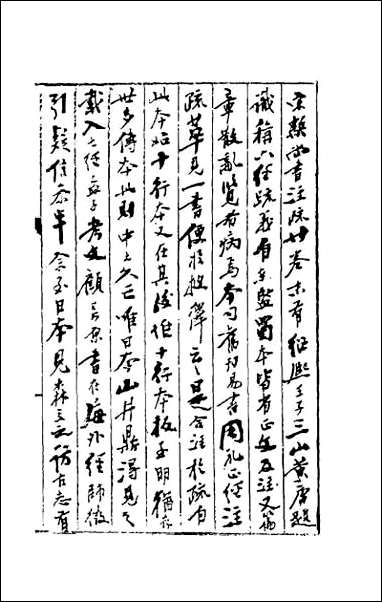 宋槧尚書注疏廿卷末有紹熙壬子三山黃唐題
識稱六經疏義自京監蜀本皆省正文及注又篇
章散亂覽者病焉本司舊刊易書周禮正經注
疏萃見一書便於披繹云云是合注於疏自
此本始十行本又在其後但十行本板至明猶存
世多傳本此則中土久亡唯日本山井鼎得見之
載入七經孟子考文顧其書在海外經師徵
引疑信參半余至日本見森立之訪古志有